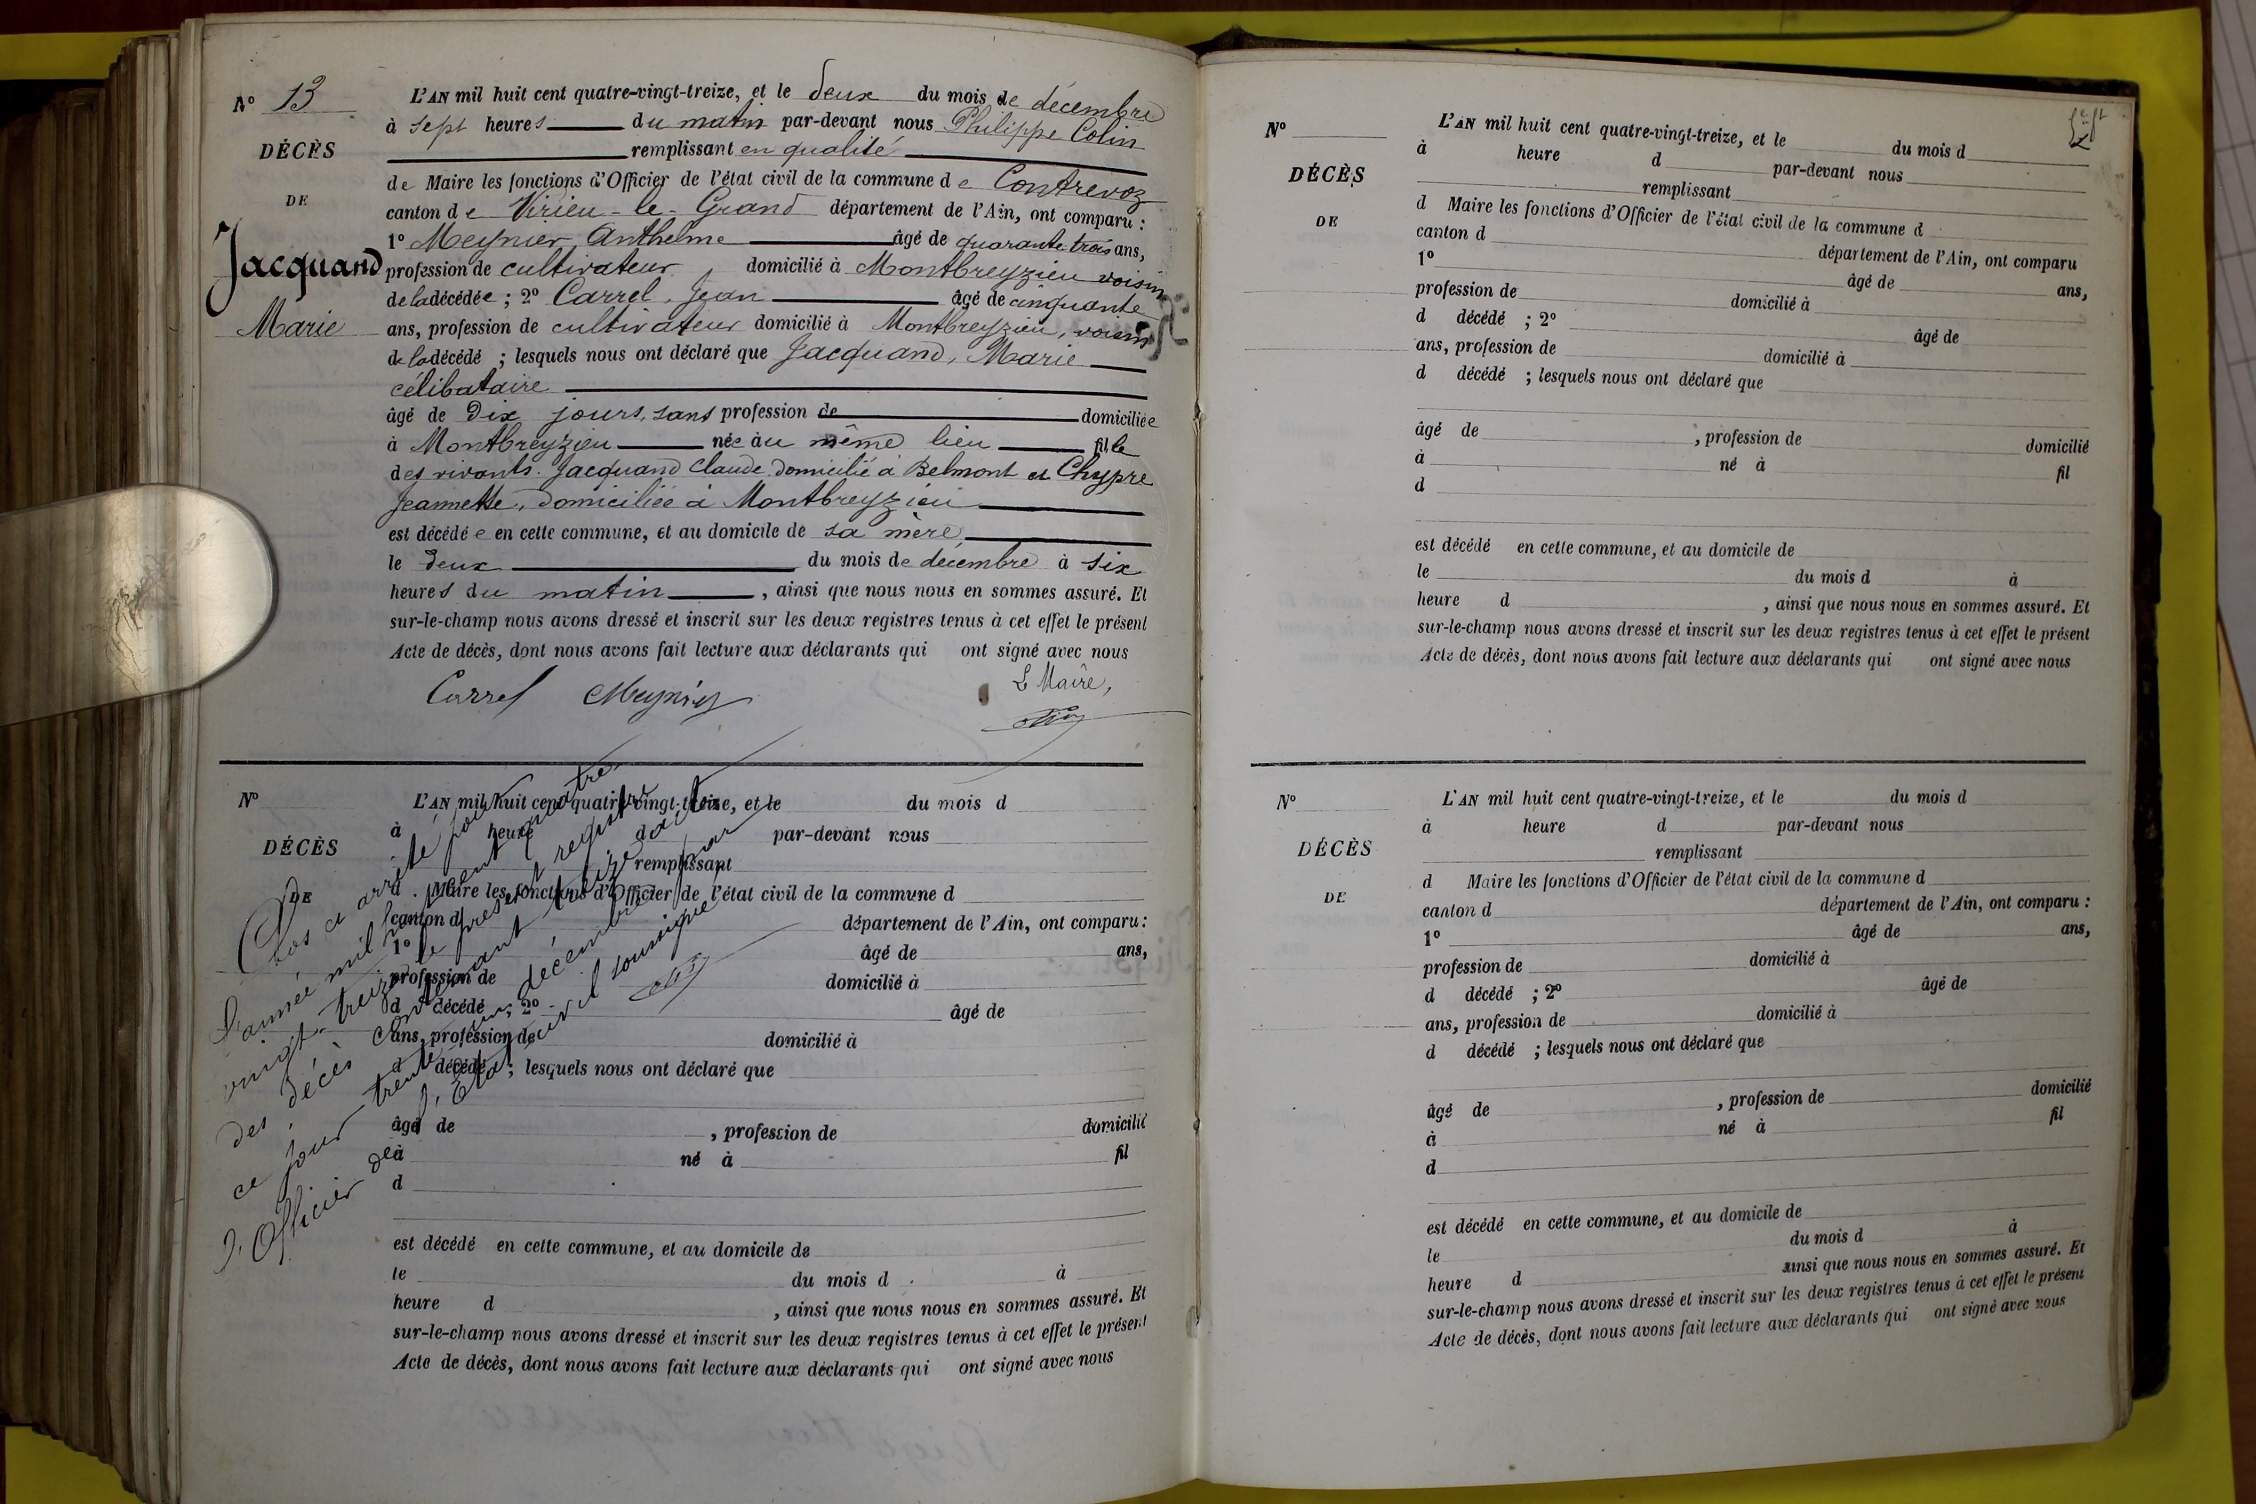 N° 13
DÉCÈS
DE
Jacquand
Marie
L'AN mil huit cent quatre-vingt-treize, et le deux du mois de décembre
à sept heures du matin par-devant nous Philippe Colin
remplissant en qualité
de Maire les fonctions d'Officier de l'état civil de la commune de Contrevoz
canton de Virieu-le-Grand département de l'Ain, ont comparu :
1° Meynier Anthelme âgé de quarante trois ans,
profession de cultivateur domicilié à Montbreyzieu voisin
de la décédée ; 2° Carrel, Jean âgé de cinquante
ans, profession de cultivateur domicilié à Montbreyzieu, voisin
de la décédé ; lesquels nous ont déclaré que Jacquand, Marie
célibataire
âgé de dix jours, sans profession de domiciliée
à Montbreyzieu née au même lieu fille
des vivants Jacquand Claude domicilié à Belmont et Chypre
Jeannette, domiciliée à Montbreyzieu
est décédée en cette commune, et au domicile de sa mère
le deux du mois de décembre à six
heures du matin, ainsi que nous nous en sommes assuré. Et
sur-le-champ nous avons dressé et inscrit sur les deux registres tenus à cet effet le présent
Acte de décès, dont nous avons fait lecture aux déclarants qui ont signé avec nous
Carrel Meynier
L Maire,
N°
DÉCÈS
DE
L'AN mil huit cent quatre-vingt-treize, et le du mois d
à heure d par-devant nous
remplissant
d Maire les fonctions d'Officier de l'état civil de la commune d
canton d département de l'Ain, ont comparu :
1° âgé de ans,
profession de domicilié à
d décédé ; 2° âgé de
ans, profession de domicilié à
d décédé ; lesquels nous ont déclaré que
âgé de , profession de domicilié
à né à fil
d
est décédé en cette commune, et au domicile de
le du mois d à
heure d , ainsi que nous nous en sommes assuré. Et
sur-le-champ nous avons dressé et inscrit sur les deux registres tenus à cet effet le présent
Acte de décès, dont nous avons fait lecture aux déclarants qui ont signé avec nous
Clos et arrêté pour
l'année mil huit cent quatre
vingt-treize le présent registre
des décès contenant treize actes
ce jour trente un décembre par
l'Officier de l'Etat civil soussigné
N°
DÉCÈS
DE
L'AN mil huit cent quatre-vingt-treize, et le du mois d
à heure d par-devant nous
remplissant
d Maire les fonctions d'Officier de l'état civil de la commune d
canton d département de l'Ain, ont comparu
1° âgé de ans,
profession de domicilié à
d décédé ; 2° âgé de
ans, profession de domicilié à
d décédé ; lesquels nous ont déclaré que
âgé de , profession de domicilié
à né à fil
d
est décédé en cette commune, et au domicile de
le du mois d à
heure d , ainsi que nous nous en sommes assuré. Et
sur-le-champ nous avons dressé et inscrit sur les deux registres tenus à cet effet le présent
Acte de décès, dont nous avons fait lecture aux déclarants qui ont signé avec nous
N°
DÉCÈS
DE
L'AN mil huit cent quatre-vingt-treize, et le du mois d
à heure d par-devant nous
remplissant
d Maire les fonctions d'Officier de l'état civil de la commune d
canton d département de l'Ain, ont comparu :
1° âgé de ans,
profession de domicilié à
d décédé ; 2° âgé de
ans, profession de domicilié à
d décédé ; lesquels nous ont déclaré que
âgé de , profession de domicilié
à né à fil
d
est décédé en cette commune, et au domicile de
le du mois d à
heure d ainsi que nous nous en sommes assuré. Et
sur-le-champ nous avons dressé et inscrit sur les deux registres tenus à cet effet le présent
Acte de décès, dont nous avons fait lecture aux déclarants qui ont signé avec nous